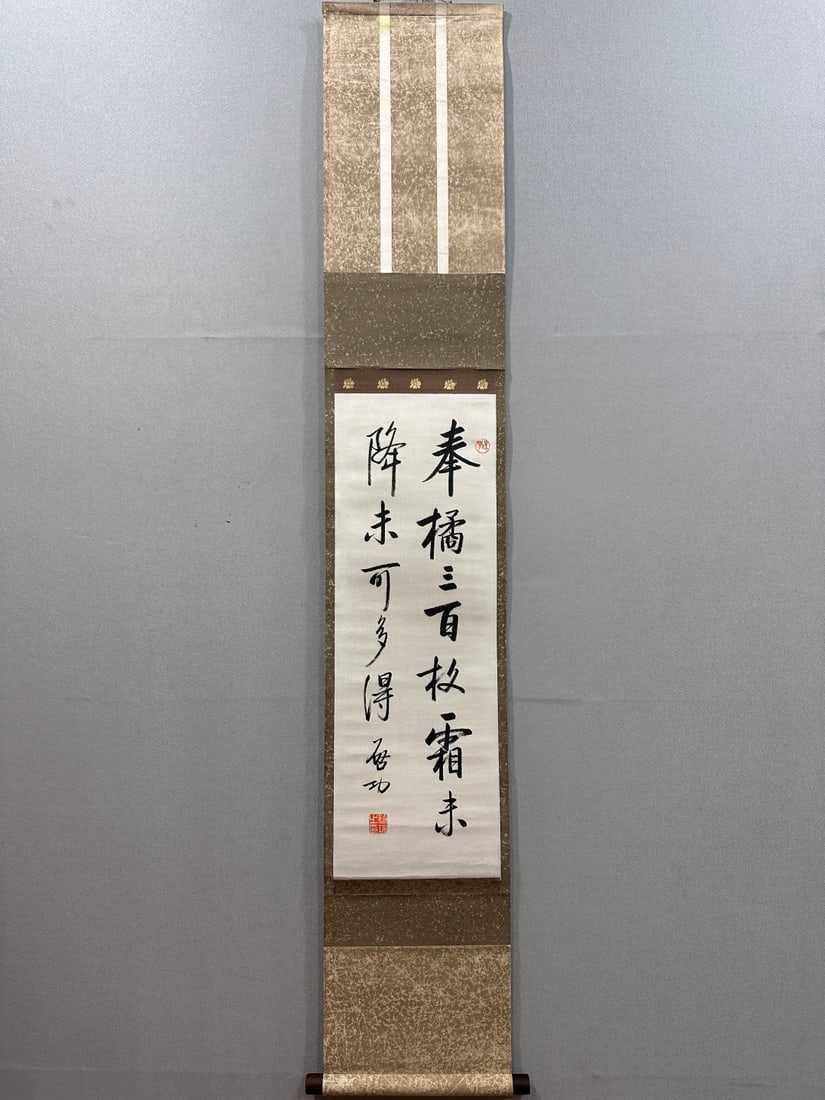 奉橘三百枚霜未
降未可多得
啓功